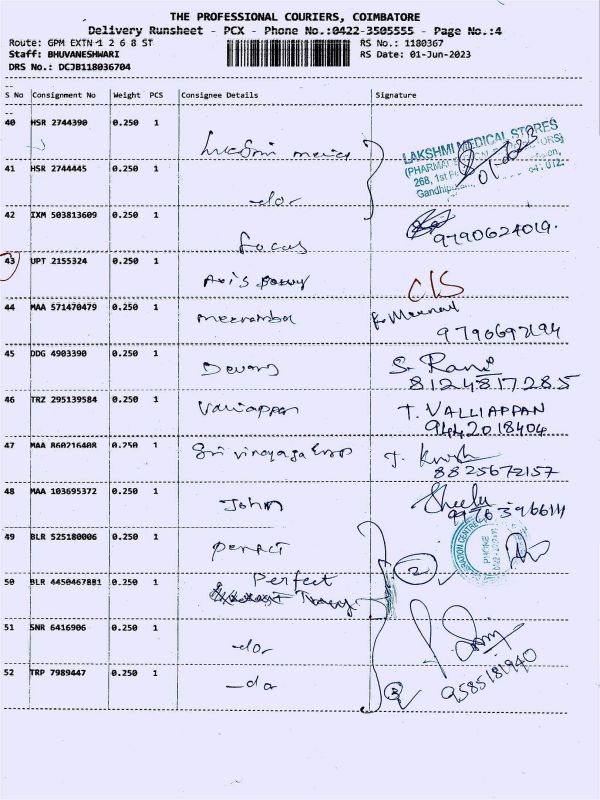 THE PROFESSIONAL COURIERS, COIMBATORE
Delivery Runsheet - PCX - Phone No.:0422-3505555 - Page No.:4
Route: GPM EXTN 1 2 6 8 ST RS No.: 1180367
Staff: BHUVANESHWARI RS Date: 01-Jun-2023
DRS No.: DCJB118036704
S No Consignment No Weight PCS Consignee Details Signature
40 HSR 2744390 0.250 1
LAKSHMI MEDICAL STORES
268, 1st
41 HSR 2744445 0.250 1 -do-
42 IXM 503813609 0.250 1 focus 9790624019.
43 UPT 2155324 0.250 1 Axis
44 MAA 571470479 0.250 1 Meenambal 9790692194
45 DDG 4903390 0.250 1 Devang S. Rani
8124817285
46 TRZ 295139584 0.250 1 Valiappan T. VALLIAPPAN
9442018404
47 MAA 860216408 0.250 1 Sri vinayaga Enrp
8825672157
48 MAA 103695372 0.250 1 John Sheela
49 BLR 525180006 0.250 1 perfect
50 BLR 4450467881 0.250 1 Perfect 2
51 SNR 6416906 0.250 1 -do-
52 TRP 7989447 0.250 1 -do 9585181940